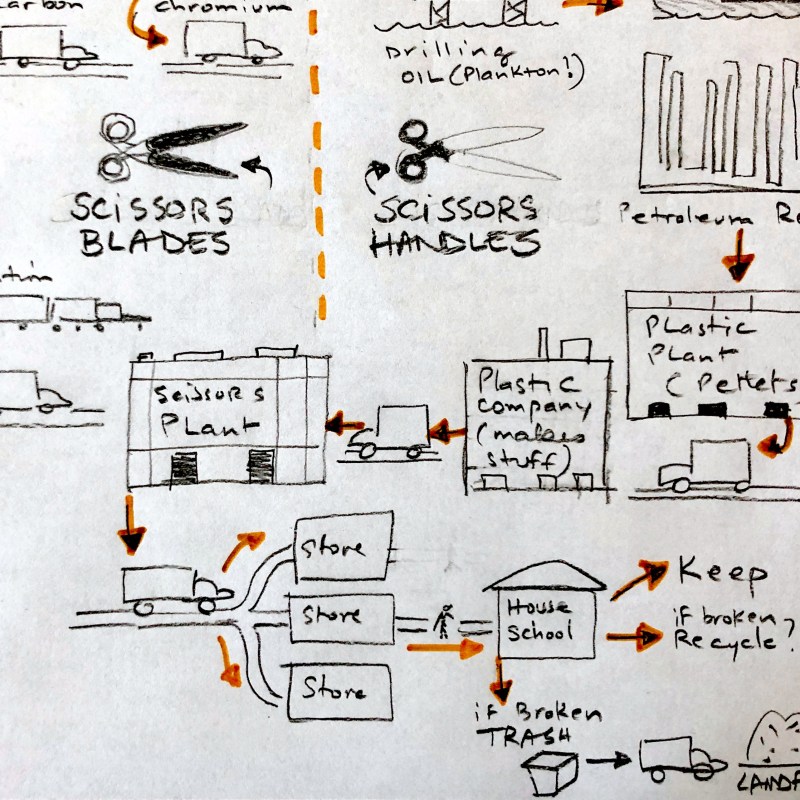 carbon
chromium
Drilling
OIL (Plankton?)
SCISSORS
BLADES
SCISSORS
HANDLES
Petroleum
Plastic
Plant
(Pellets
Scissors
Plant
Plastic
company
(makes
stuff)
Store
Store
Store
House
School
Keep
if broken
Recycle?
if Broken
TRASH
LANDF